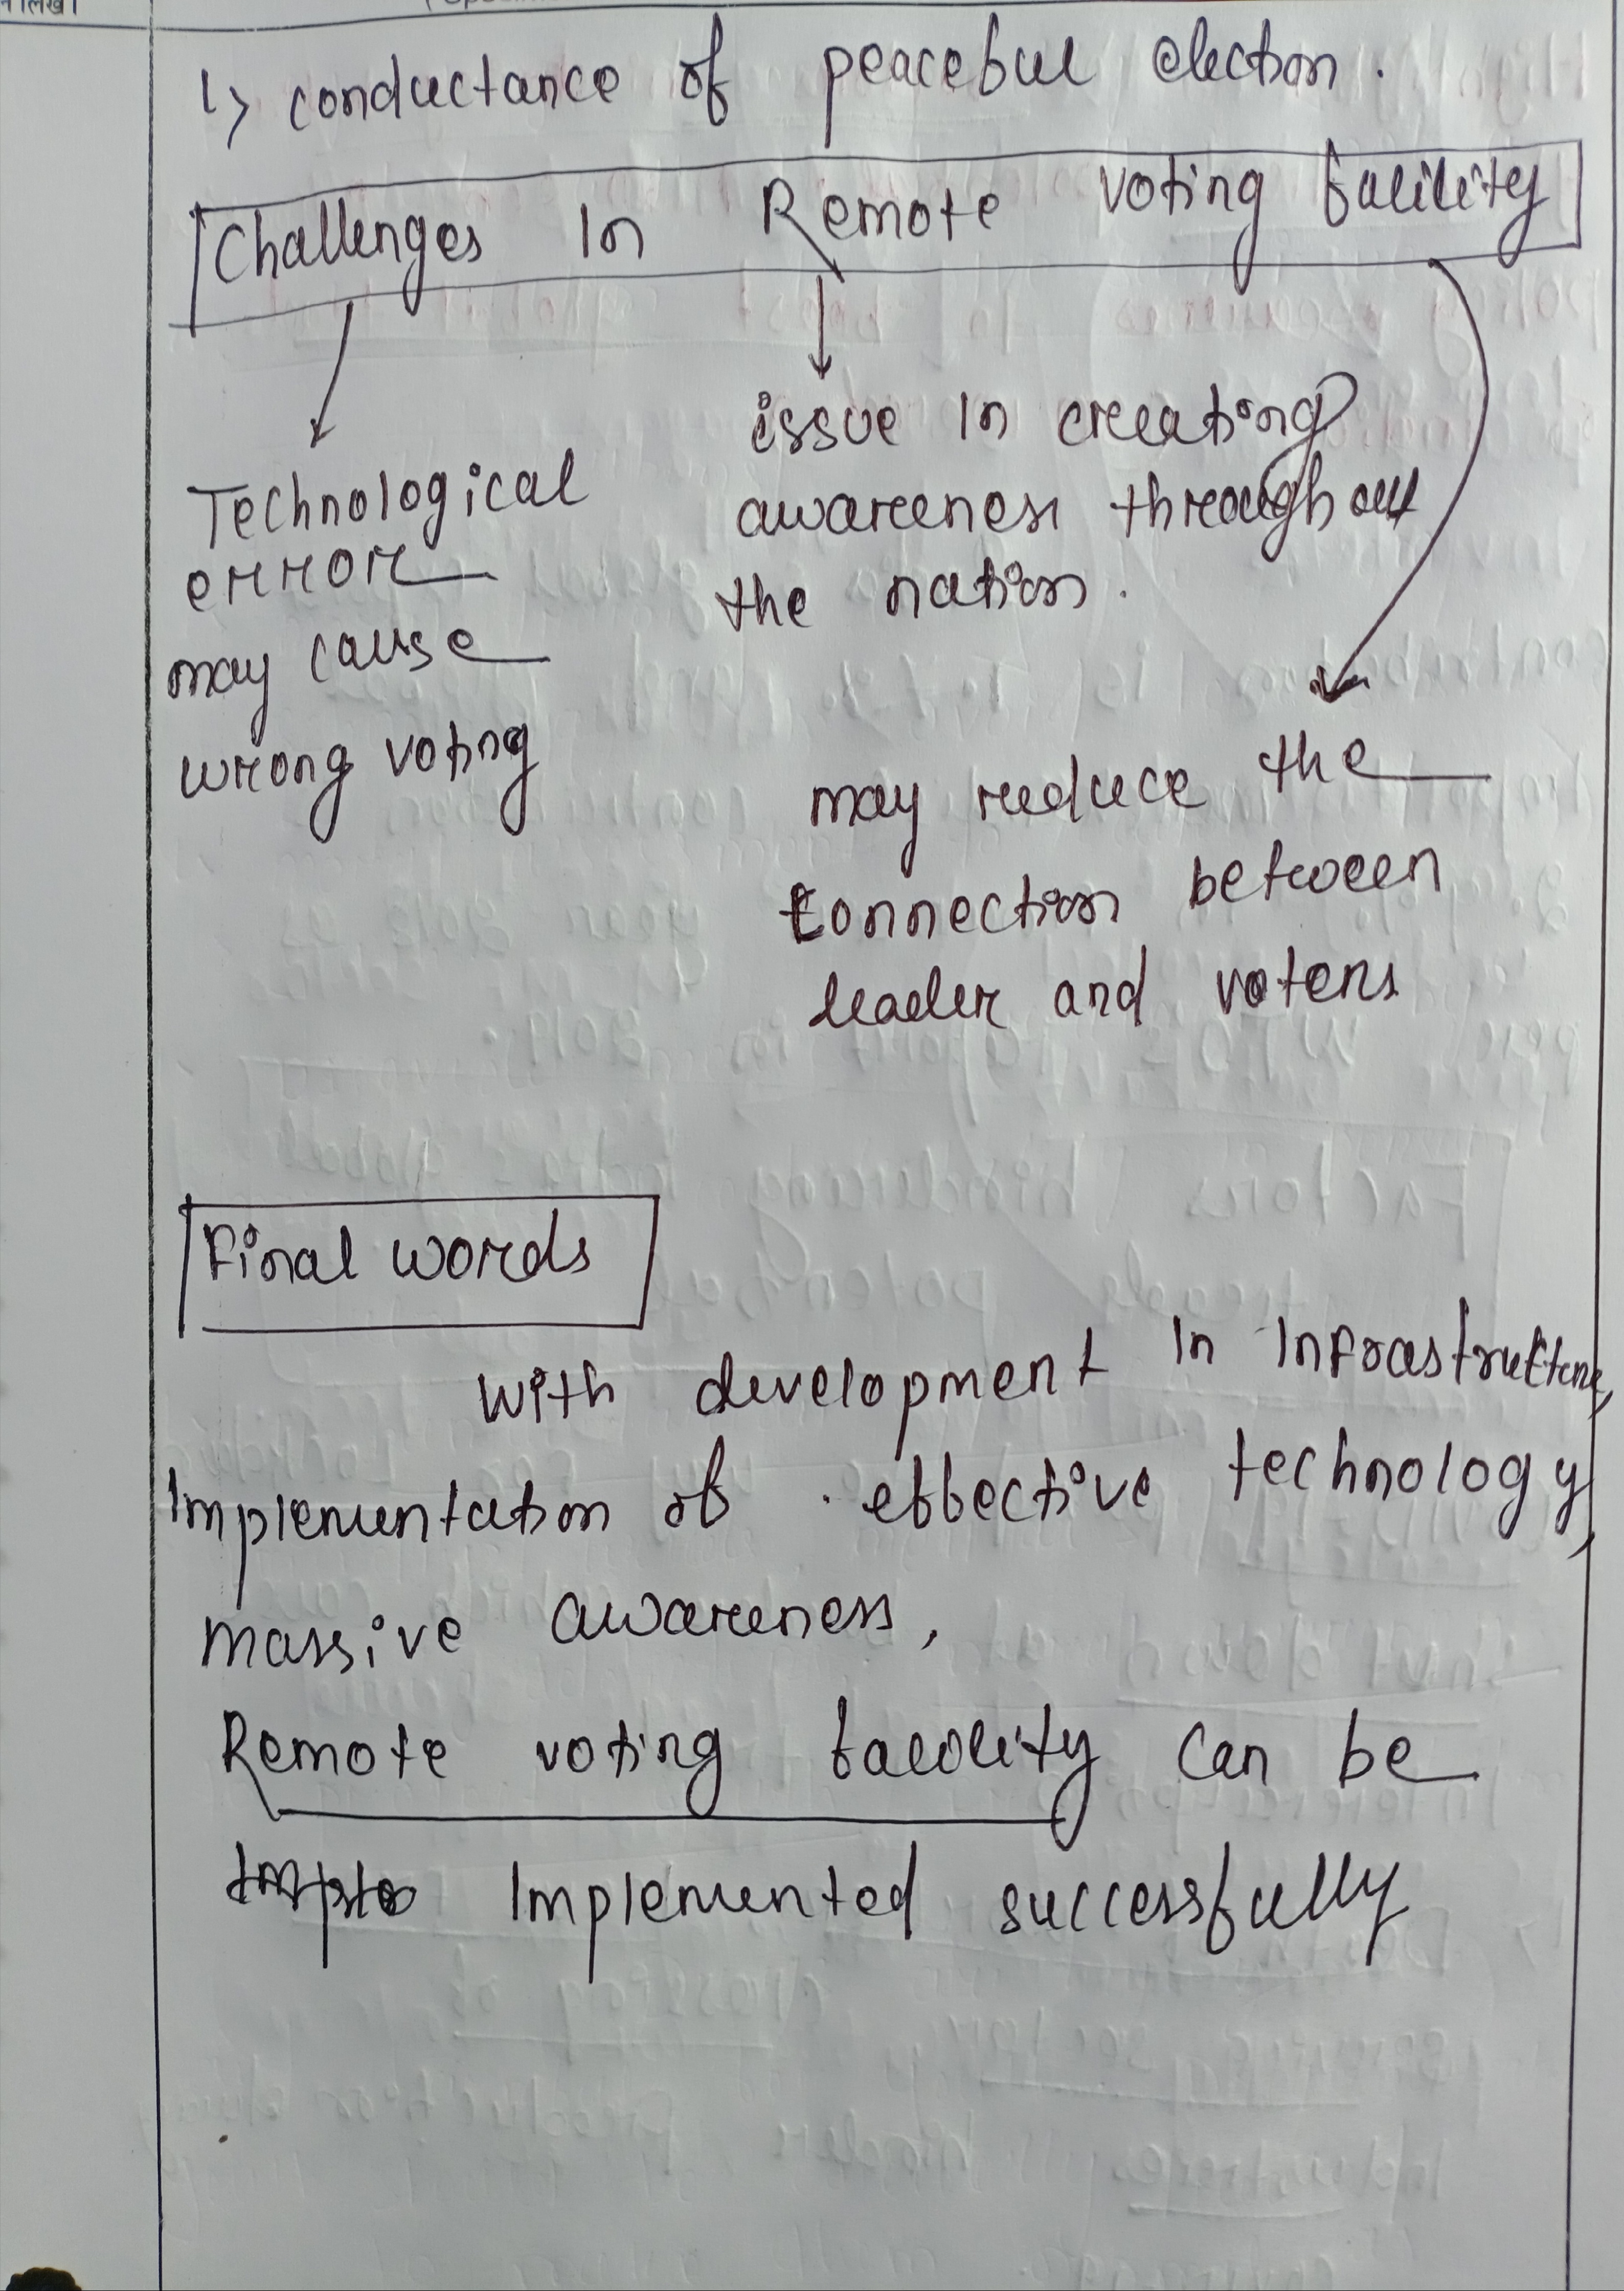 ↳ conductance of peaceful election.
Challenges In Remote voting facility
Technological
error
may cause
wrong voting
issue In creating
awareness throughout
the nation.
may reduce the
connection between
leader and voters
Final words
With development In Infrastructure,
Implementation of effective technology,
massive awareness,
Remote voting facility can be
Implemented successfully